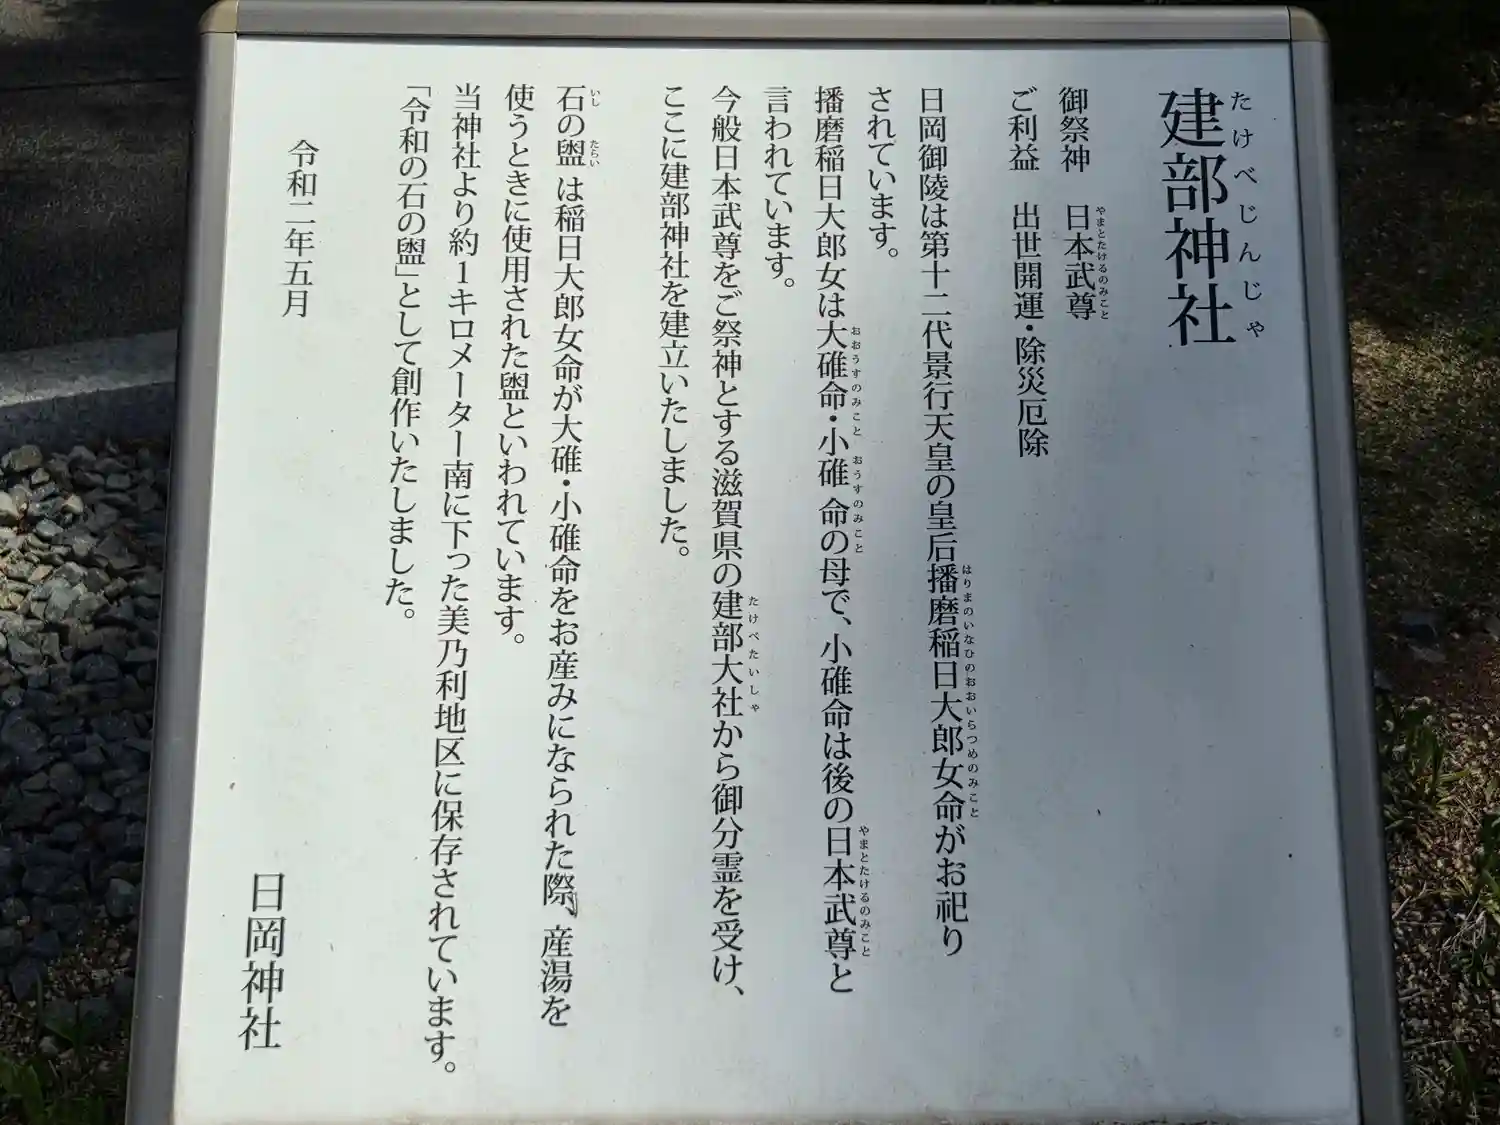 建部神社
たけべじんじゃ
御祭神 日本武尊
やまとたけるのみこと
ご利益 出世開運・除災厄除
日岡御陵は第十二代景行天皇の皇后播磨稲日大郎女命がお祀り
はりまのいなひのおおいらつめのみこと
されています。
播磨稲日大郎女は大碓命・小碓命の母で、小碓命は後の日本武尊と
おおうすのみこと おうすのみこと やまとたけるのみこと
言われています。
今般日本武尊をご祭神とする滋賀県の建部大社から御分霊を受け、
たけべたいしゃ
ここに建部神社を建立いたしました。
石の盥は稲日大郎女命が大碓・小碓命をお産みになられた際、産湯を
いし たらい
使うときに使用された盥といわれています。
当神社より約1キロメーター南に下った美乃利地区に保存されています。
「令和の石の盥」として創作いたしました。
令和二年五月
日岡神社